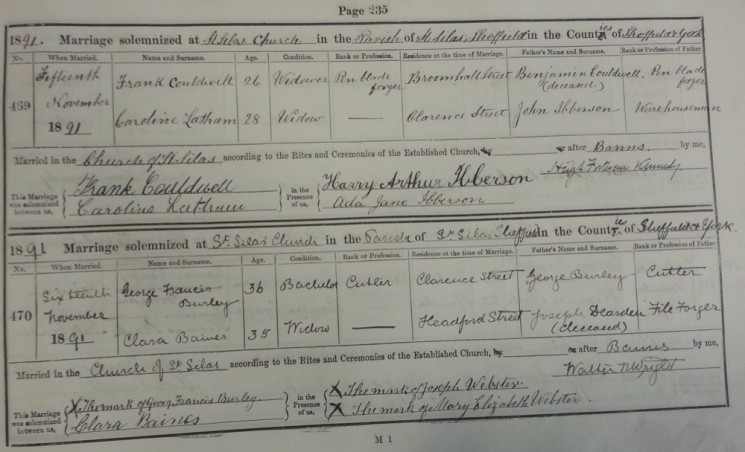 Page 235
1891. Marriage solemnized at St Silas Church in the Parish of St Silas, Sheffield in the Counties of Sheffield & York
No. When Married. Name and Surname. Age. Condition. Rank or Profession. Residence at the time of Marriage. Father's Name and Surname. Rank or Profession of Father
469 Fifteenth November 1891 Frank Couldwell 26 Widower Pen blade forger Broomhall Street Benjamin Couldwell (deceased) Pen blade forger
Caroline Latham 28 Widow — Clarence Street John Ibberson Warehouseman
Married in the Church of St Silas according to the Rites and Ceremonies of the Established Church, by or after Banns by me,
Hugh Kennedy
This Marriage was solemnized between us, Frank Couldwell Caroline Latham in the Presence of us, Harry Arthur Ibberson Ada Jane Ibberson
1891 Marriage solemnized at St Silas Church in the Parish of St Silas Sheffield in the Counties of Sheffield & York.
No. When Married. Name and Surname. Age. Condition. Rank or Profession. Residence at the time of Marriage. Father's Name and Surname. Rank or Profession of Father
470 Sixteenth November 1891 George Francis Burley 36 Bachelor Cutler Clarence Street George Burley Cutler
Clara Baines 35 Widow — Headford Street Joseph Dearden (deceased) File Forger
Married in the Church of St Silas according to the Rites and Ceremonies of the Established Church, by or after Banns by me,
Walter Wright
This Marriage was solemnized between us, X The mark of Georg Francis Burley Clara Baines in the Presence of us, X The mark of Joseph Webster X The mark of Mary Elizabeth Webster.
M 1